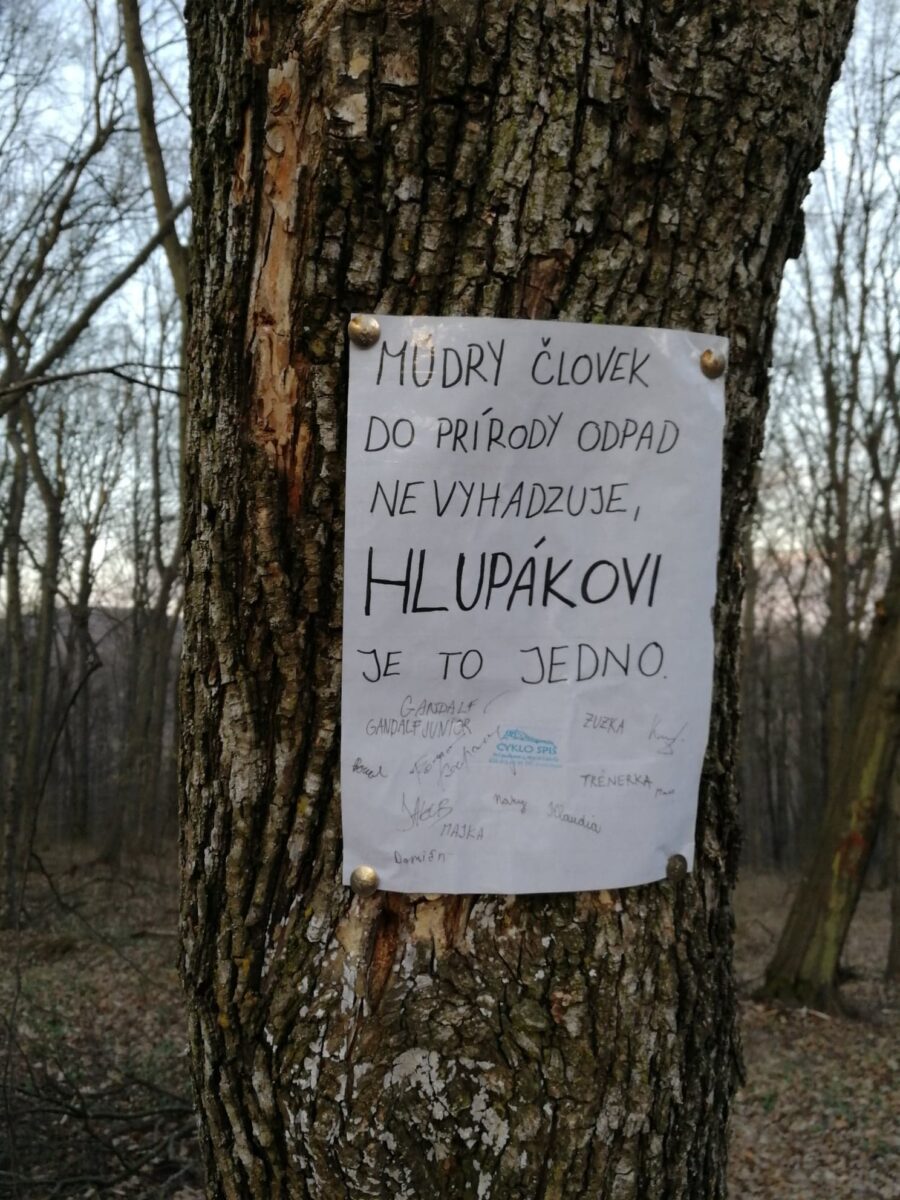 MÚDRY ČLOVEK
DO PRÍRODY ODPAD
NEVYHADZUJE,
HLUPÁKOVI
JE TO JEDNO.
GANDALF
GANDALF JUNIOR
ZUZKA
CYKLO SPIŠ
TRÉNERKA
JAKUB
Klaudia
MAJKA
Damián